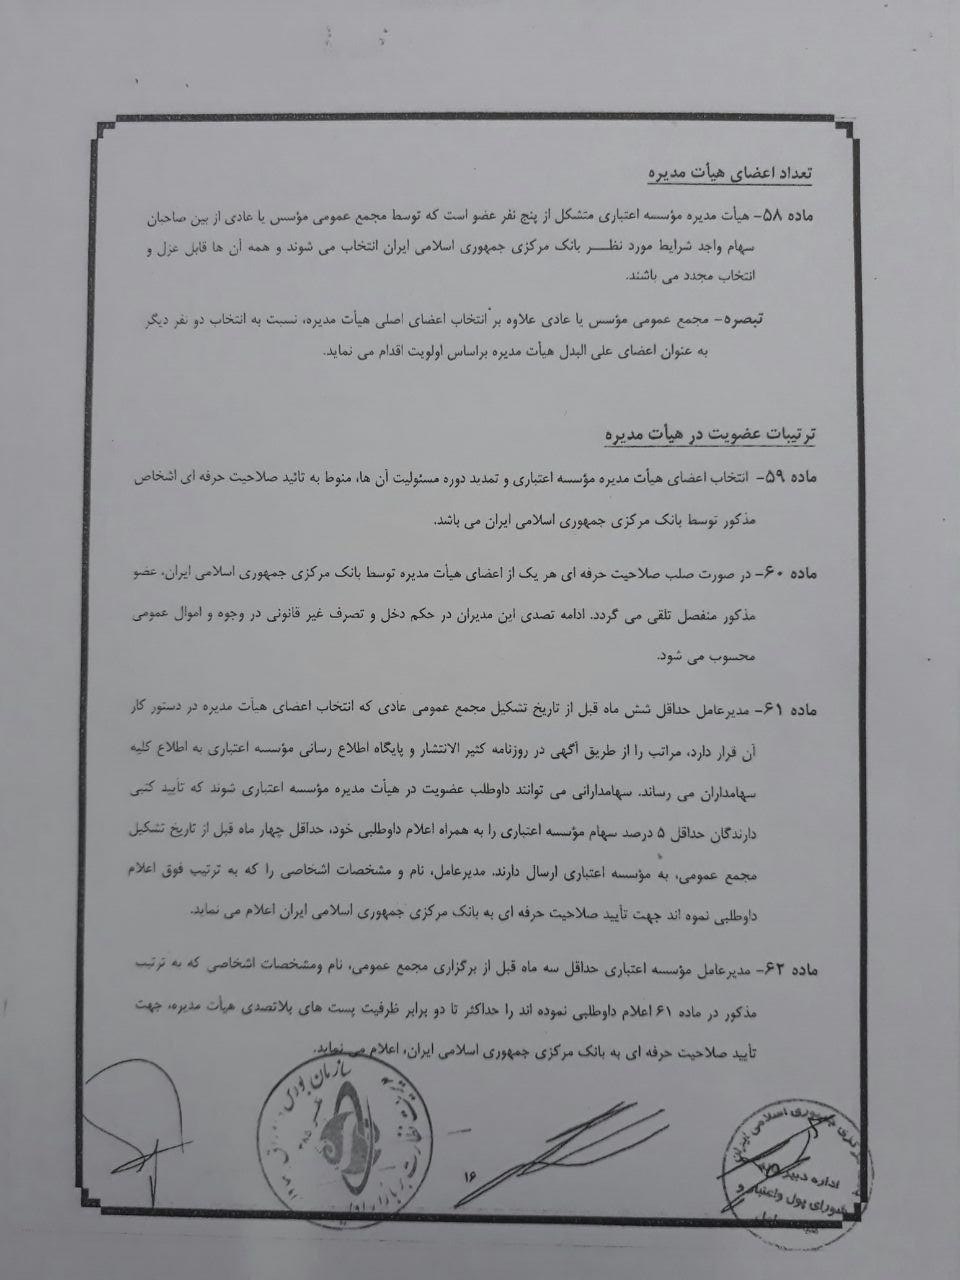 تعداد اعضای هیأت مدیره
ماده ۵۸- هیأت مدیره مؤسسه اعتباری متشکل از پنج نفر عضو است که توسط مجمع عمومی مؤسس یا عادی از بین صاحبان
سهام واجد شرایط مورد نظر بانک مرکزی جمهوری اسلامی ایران انتخاب می شوند و همه آن ها قابل عزل و
انتخاب مجدد می باشند.
تبصره- مجمع عمومی مؤسس یا عادی علاوه بر انتخاب اعضای اصلی هیأت مدیره، نسبت به انتخاب دو نفر دیگر
به عنوان اعضای علی البدل هیأت مدیره براساس اولویت اقدام می نماید.
ترتیبات عضویت در هیأت مدیره
ماده ۵۹- انتخاب اعضای هیأت مدیره مؤسسه اعتباری و تمدید دوره مسئولیت آن ها، منوط به تائید صلاحیت حرفه ای اشخاص
مذکور توسط بانک مرکزی جمهوری اسلامی ایران می باشد.
ماده ۶۰- در صورت صلب صلاحیت حرفه ای هر یک از اعضای هیأت مدیره توسط بانک مرکزی جمهوری اسلامی ایران، عضو
مذکور منفصل تلقی می گردد. ادامه تصدی این مدیران در حکم دخل و تصرف غیر قانونی در وجوه و اموال عمومی
محسوب می شود.
ماده ۶۱- مدیرعامل حداقل شش ماه قبل از تاریخ تشکیل مجمع عمومی عادی که انتخاب اعضای هیأت مدیره در دستور کار
آن قرار دارد، مراتب را از طریق آگهی در روزنامه کثیر الانتشار و پایگاه اطلاع رسانی مؤسسه اعتباری به اطلاع کلیه
سهامداران می رساند. سهامدارانی می توانند داوطلب عضویت در هیأت مدیره مؤسسه اعتباری شوند که تأیید کتبی
دارندگان حداقل ۵ درصد سهام مؤسسه اعتباری را به همراه اعلام داوطلبی خود، حداقل چهار ماه قبل از تاریخ تشکیل
مجمع عمومی، به مؤسسه اعتباری ارسال دارند. مدیرعامل، نام و مشخصات اشخاصی را که به ترتیب فوق اعلام
داوطلبی نموه اند جهت تأیید صلاحیت حرفه ای به بانک مرکزی جمهوری اسلامی ایران اعلام می نماید.
ماده ۶۲- مدیرعامل مؤسسه اعتباری حداقل سه ماه قبل از برگزاری مجمع عمومی، نام ومشخصات اشخاصی که به ترتیب
مذکور در ماده ۶۱ اعلام داوطلبی نموده اند را حداکثر تا دو برابر ظرفیت پست های بلاتصدی هیأت مدیره، جهت
تأیید صلاحیت حرفه ای به بانک مرکزی جمهوری اسلامی ایران، اعلام می نماید.
سازمان بورس
جمهوری اسلامی ایران
اداره
شورای پول و اعتبار و
۱۶